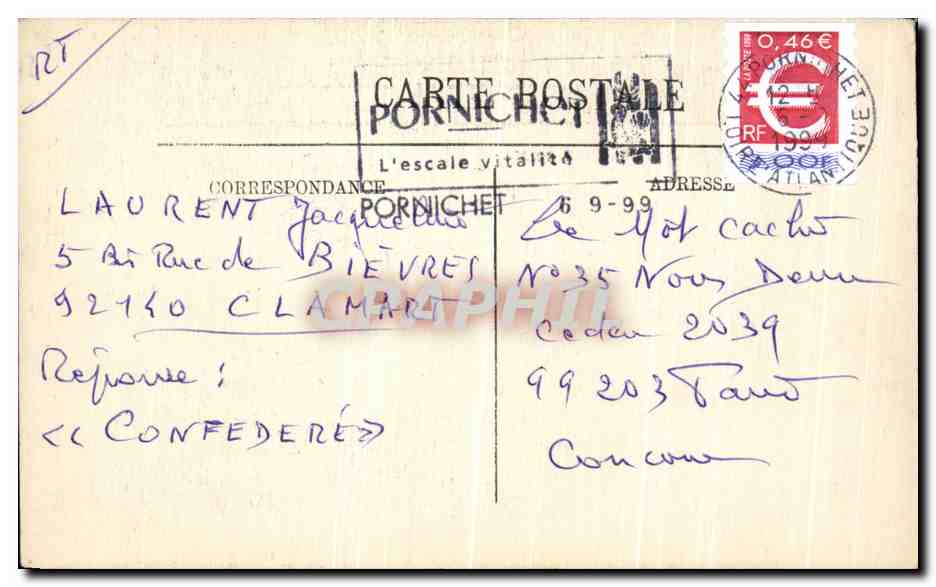 RT
CARTE POSTALE
PORNICHET
L'escale vitalité
PORNICHET 6 9-99
0,46 €
LA POSTE 1999
RF
3,00F
44 PORNICHET
12 H
6-9
1999
LOIRE ATLANTIQUE
CORRESPONDANCE
ADRESSE
LAURENT Jacqueline
5 Bis Rue de BIÈVRES
92140 CLAMART
Réponse :
<< CONFEDERÉ >>
Le Mot caché
N° 35 Nous Deux
Cedex 2039
99 203 Paris
Concours
CPAPHIL